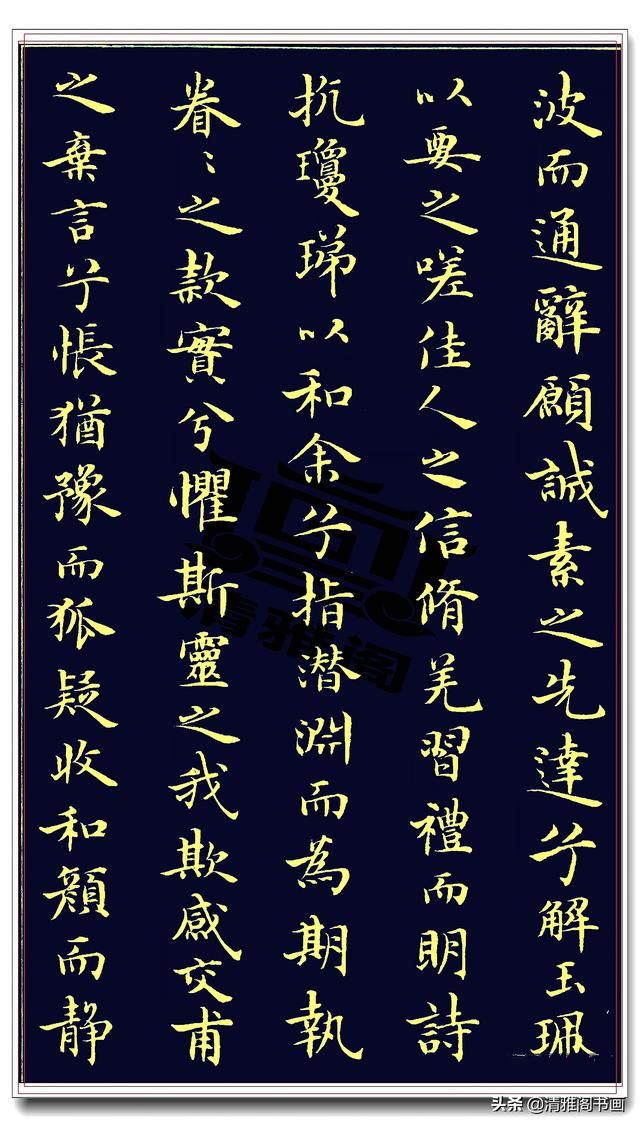 波而通辭願誠素之先達兮解玉珮
以要之嗟佳人之信脩羌習禮而明詩
抗瓊珶以和余兮指潛淵而為期執
眷〻之款實兮懼斯靈之我欺感交甫
之棄言兮悵猶豫而狐疑收和顏而静
清雅阁
头条 @清雅阁书画